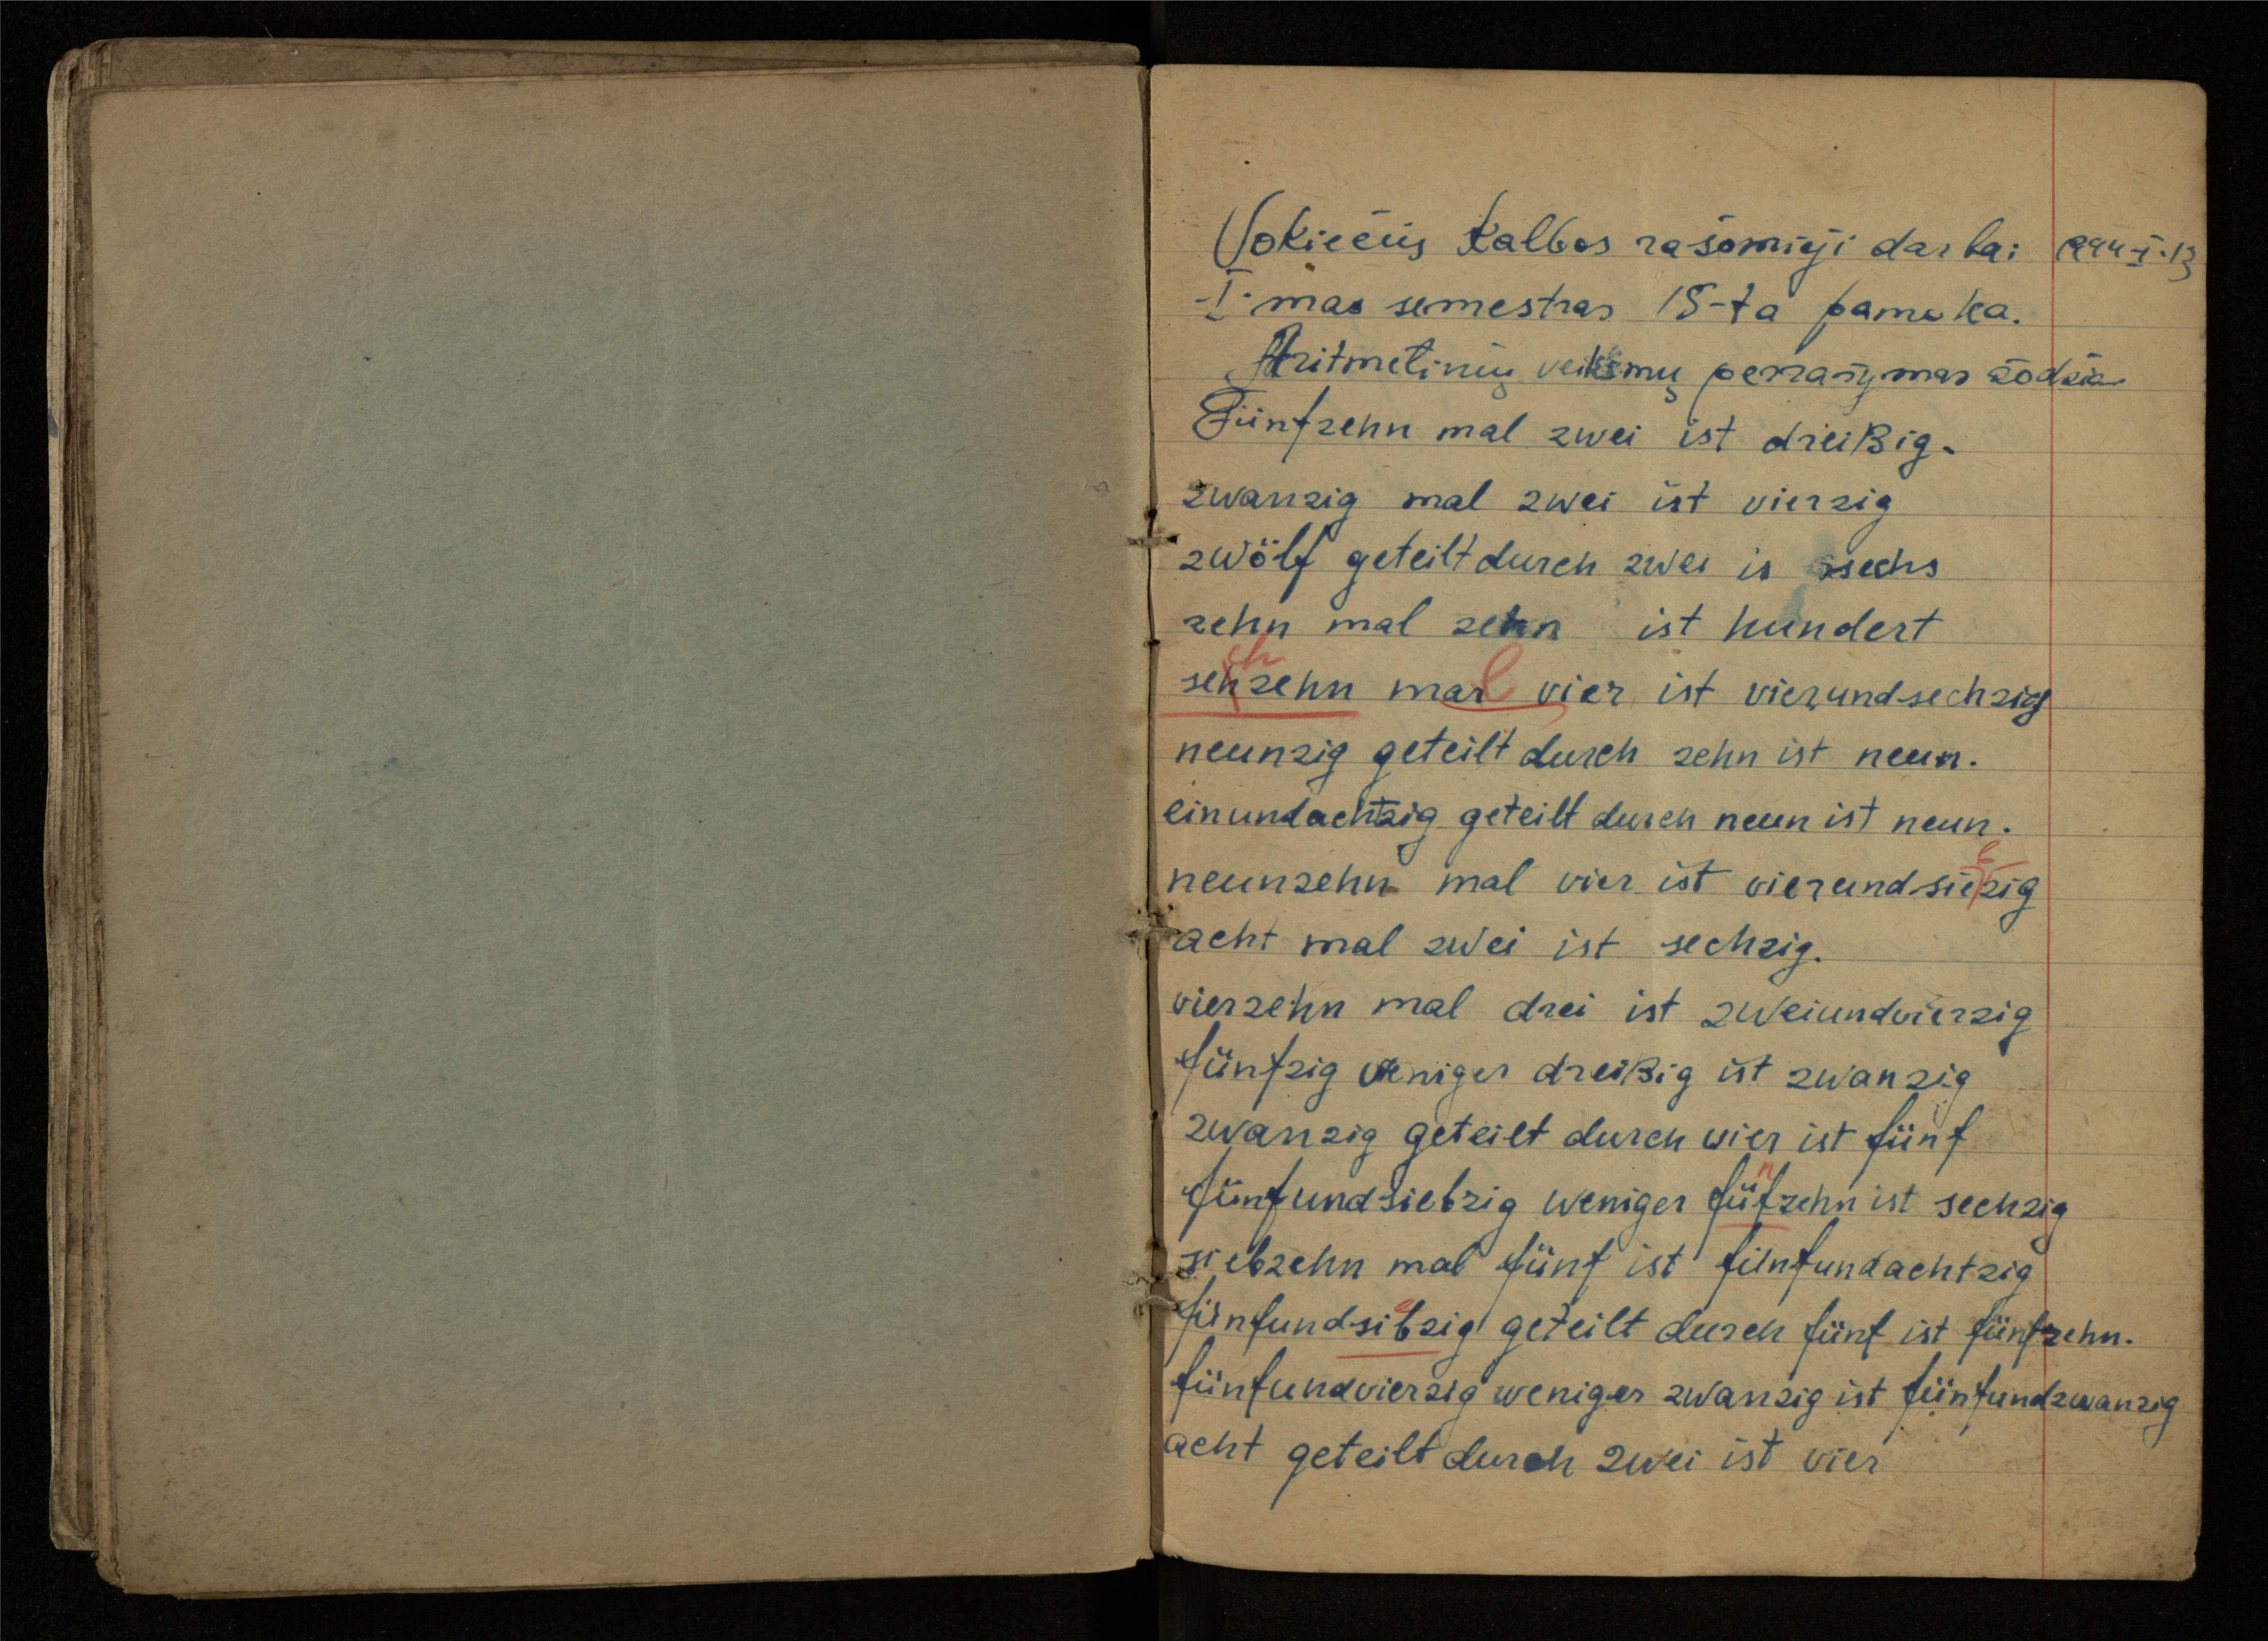 Vokiečių Kalbos rašomieji darbai 1944-I-13
-I-mas semestras 15-ta pamoka.
Aritmetinių veiksmų perrašymas žodžia
Fünfzehn mal zwei ist dreißig.
zwanzig mal zwei ist vierzig
zwölf geteilt durch zwei is sechs
zehn mal zehn ist hundert
sehzehn mar vier ist vierundsechzig
neunzig geteilt durch zehn ist neun.
einundachtzig geteilt durch neun ist neun.
neunzehn mal vier ist vierundsiezig
acht mal zwei ist sechzig.
vierzehn mal drei ist zweiundvierzig
fünfzig weniger dreißig ist zwanzig
zwanzig geteilt durch vier ist fünf
fünfundsiebzig weniger füfzehn ist sechzig
siebzehn mal fünf ist fünfundachtzig
fünfundsibzig geteilt durch fünf ist fünfzehn.
fünfundvierzig weniger zwanzig ist fünfundzwanzig
acht geteilt durch zwei ist vier